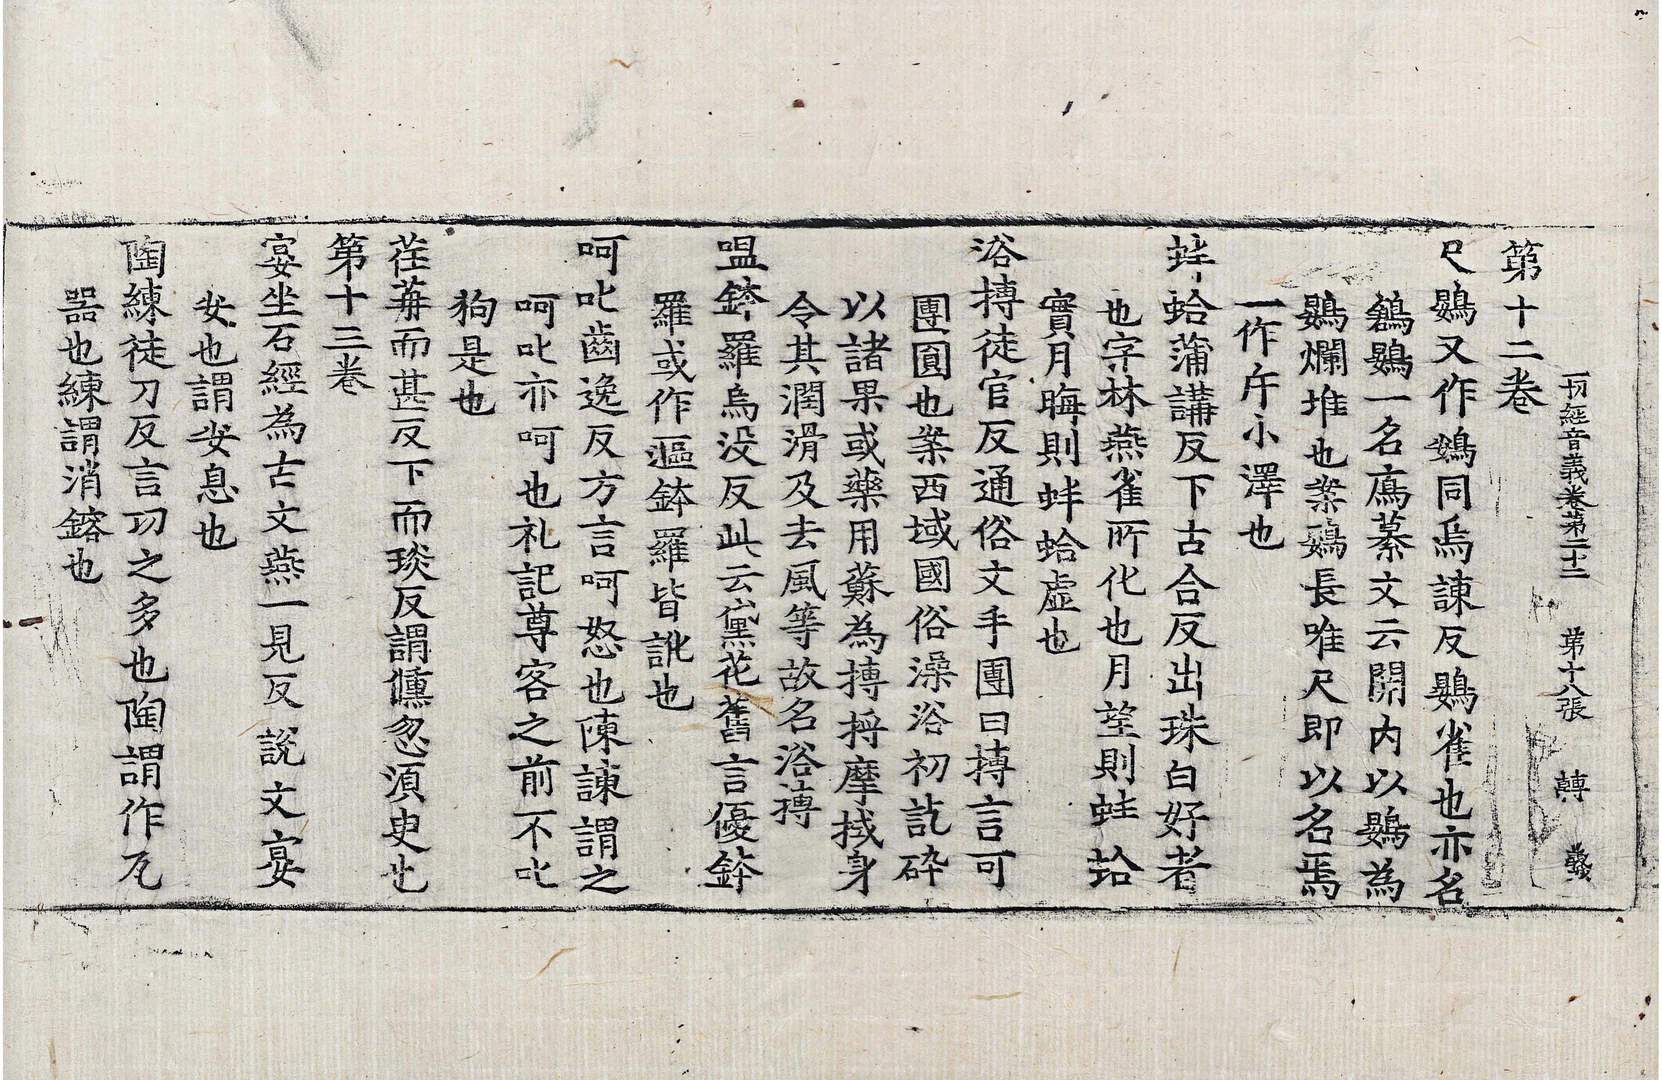 一切經音義卷第二十三　第十八張　轉　發
第十二卷
尺鷃又作鴳同烏諫反鷃雀也亦名
鶕鷃一名鳸纂文云關內以鷃為
鷃爛堆也案鷃長唯尺即以名焉
一作斥小澤也
蚌蛤蒲講反下古合反出珠白好者
也字林燕雀所化也月望則蚌蛤
實月晦則蚌蛤虛也
浴摶徒官反通俗文手團曰摶言可
團圓也案西域國俗澡浴初訖碎
以諸果或藥用蘇為摶捋摩拭身
令其潤滑及去風等故名浴摶
嗢鉢羅烏沒反此云黛花舊言優鉢
羅或作漚鉢羅皆訛也
呵叱齒逸反方言呵怒也陳諫謂之
呵叱亦呵也礼記尊客之前不叱
狗是也
荏苒而甚反下而琰反謂儵忽湏臾也
第十三卷
宴坐石經為古文燕一見反說文宴
安也謂安息也
陶練徒刀反言功之多也陶謂作瓦
器也練謂消鎔也